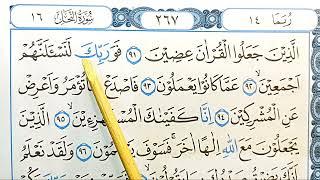 رُبَمَا ١٤ ٢٦٧ سُوْرَةُ النَّحْل ١٦
الَّذِيْنَ جَعَلُوا الْقُرْاٰنَ عِضِيْنَ ٩١ فَوَرَبِّكَ لَنَسْـَٔلَنَّهُمْ
اَجْمَعِيْنَ ٩٢ عَمَّا كَانُوْا يَعْمَلُوْنَ ٩٣ فَاصْدَعْ بِمَا تُؤْمَرُ وَاَعْرِضْ
عَنِ الْمُشْرِكِيْنَ ٩٤ اِنَّا كَفَيْنٰكَ الْمُسْتَهْزِءِيْنَ ٩٥ الَّذِيْنَ
يَجْعَلُوْنَ مَعَ اللّٰهِ اِلٰهًا اٰخَرَ فَسَوْفَ يَعْلَمُوْنَ ٩٦ وَلَقَدْ نَعْلَمُ